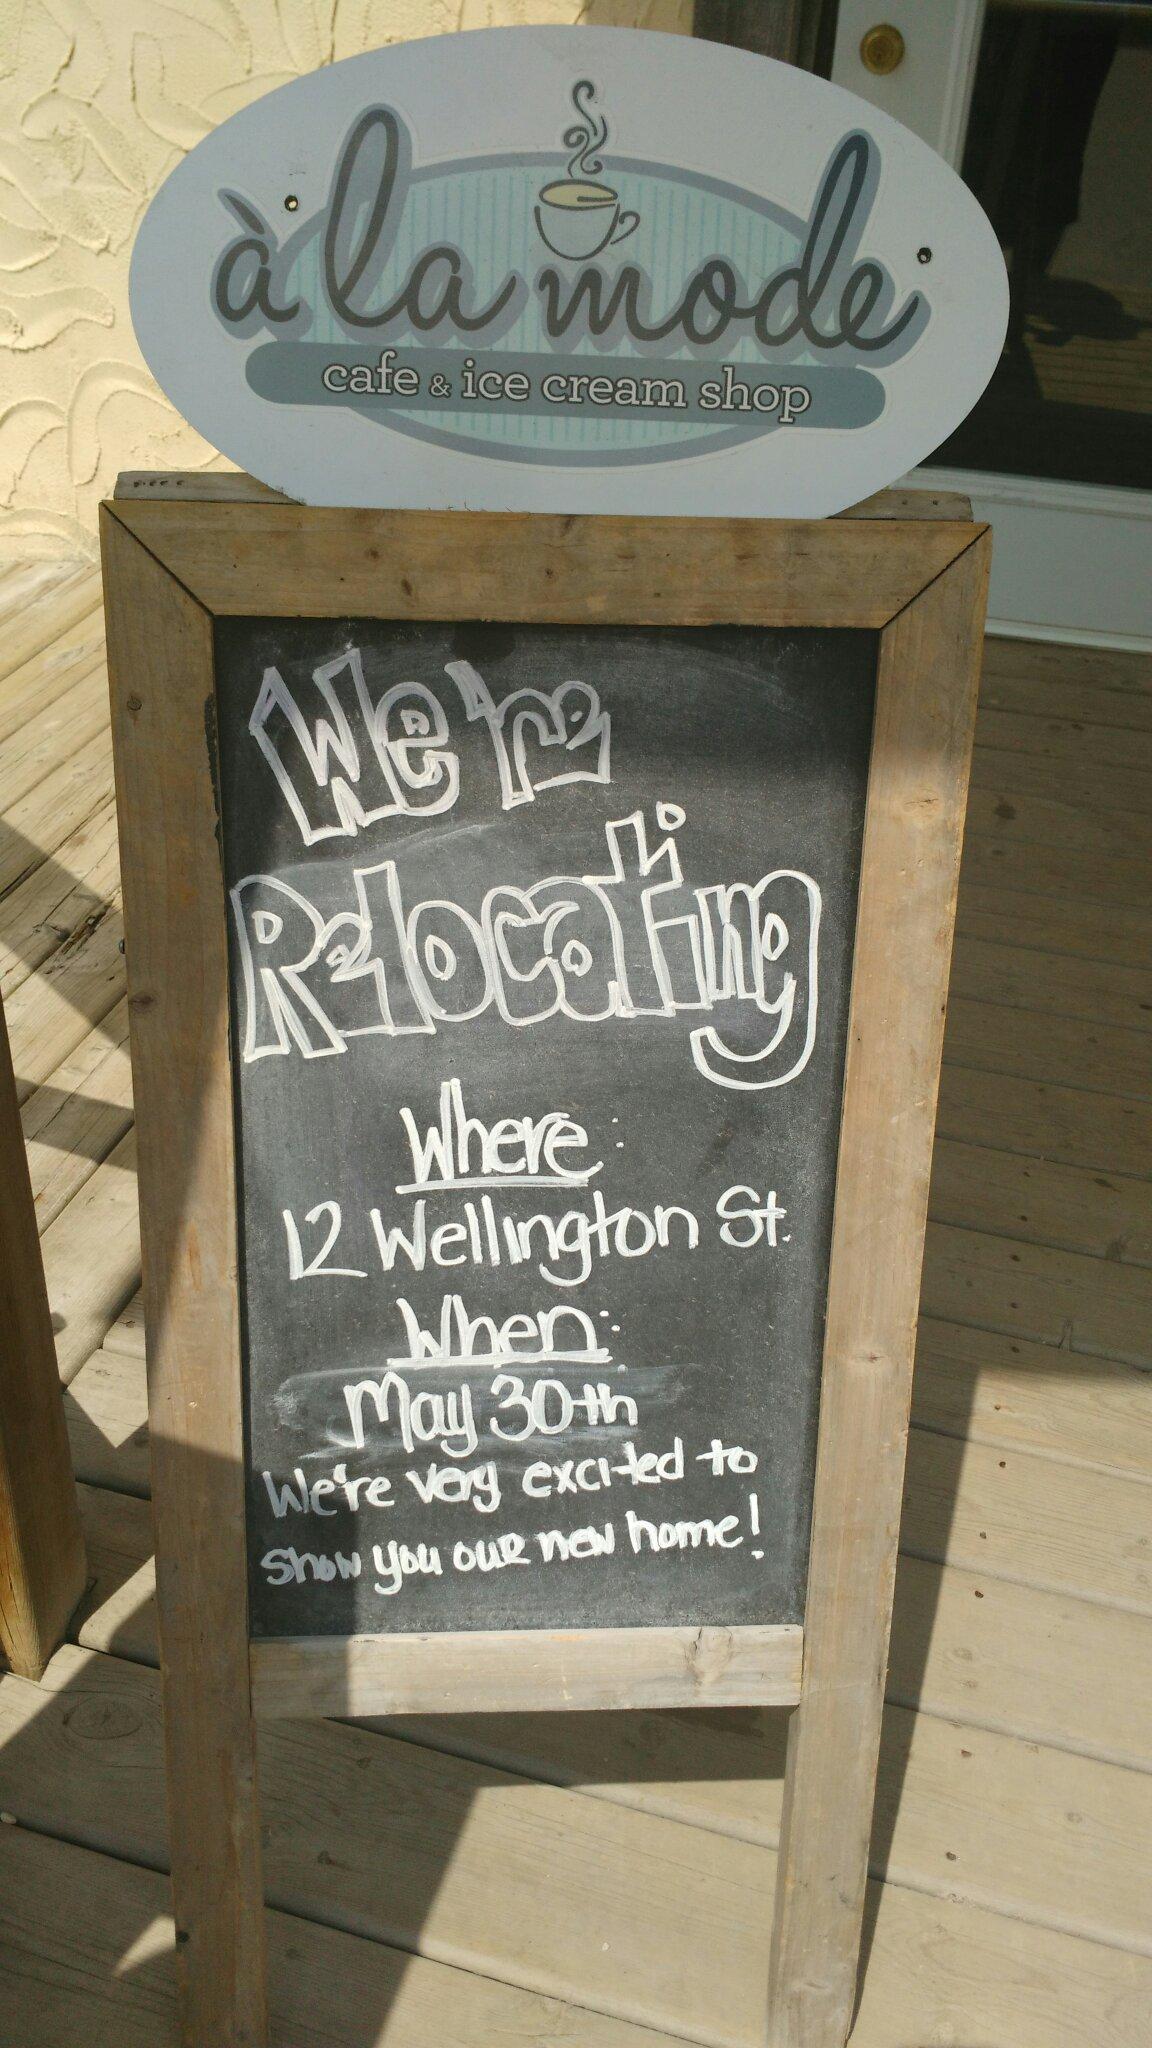 à la mode
cafe & ice cream shop
We're
Relocating
Where:
12 Wellington St.
When:
May 30th
We're very excited to
show you our new home!